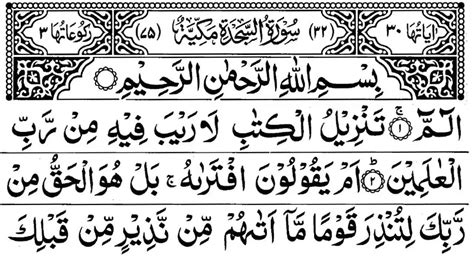 اٰیَاتُهَا ٣٠ (٣٢) سُوْرَةُ السَّجْدَةِ مَكِّيَّةٌ (٧٥) رُكُوْعَاتُهَا ٣
بِسْمِ اللّٰهِ الرَّحْمٰنِ الرَّحِيْمِ
الٓمّٓ ۚ‏ ١ تَنْزِيْلُ الْكِتٰبِ لَا رَيْبَ فِيْهِ مِنْ رَّبِّ
الْعٰلَمِيْنَ ؕ‏ ٢ اَمْ يَقُوْلُوْنَ افْتَرٰىهُ ۚ بَلْ هُوَ الْحَقُّ مِنْ
رَّبِّكَ لِتُنْذِرَ قَوْمًا مَّاۤ اَتٰىهُمْ مِّنْ نَّذِيْرٍ مِّنْ قَبْلِكَ